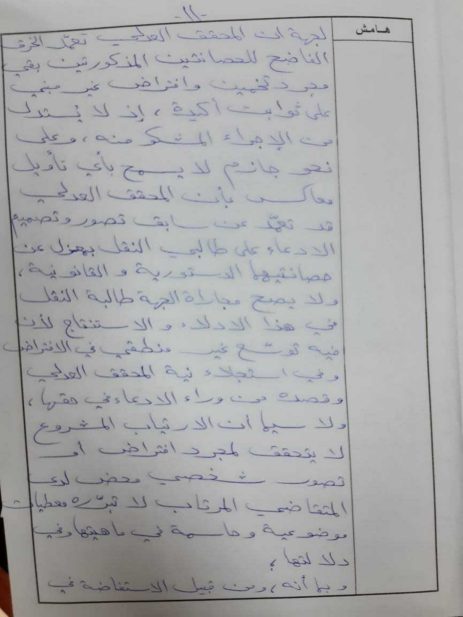 -١١-
هامش
لجهة ان المحقق العدلي تعمّد الخرق
الفاضح للحصانتين المذكورتين بقي
مجرد تخمين وافتراض غير مبني
على ثوابت أكيدة، إذ لا يُستدل
من الإجراء المشكو منه، وعلى
نحو جازم لا يسمح بأي تأويل
معاكس بأن المحقق العدلي
قد تعمّد عن سابق تصور وتصميم
الادعاء على طالبي النقل بمعزل عن
حصانتيهما الدستورية والقانونية،
ولا يصح مجاراة الجهة طالبة النقل
في هذا الادلاء والاستنتاج لأن
فيه توسّع غير منطقي في الافتراض
وفي استجلاء نية المحقق العدلي
وقصده من وراء الادعاء في حقها،
ولا سيما أن الارتياب المشروع
لا يتحقق لمجرد افتراض او
تصور شخصي محض لدى
المتقاضي المرتاب لا تبرّره معطيات
موضوعية وحاسمة في ماهيتها وفي
دلالتها،
وبما أنه، ومن قبيل الاستفاضة في